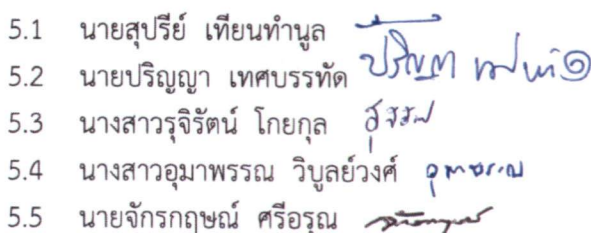 5.1 นายสุปรีย์ เทียนทำนูล
5.2 นายปริญญา เทศบรรทัด ปริญญา
5.3 นางสาวรุจิรัตน์ โกยกุล
5.4 นางสาวอุมาพรรณ วิบูลย์วงศ์ อุมาพรรณ
5.5 นายจักรกฤษณ์ ศรีอรุณ